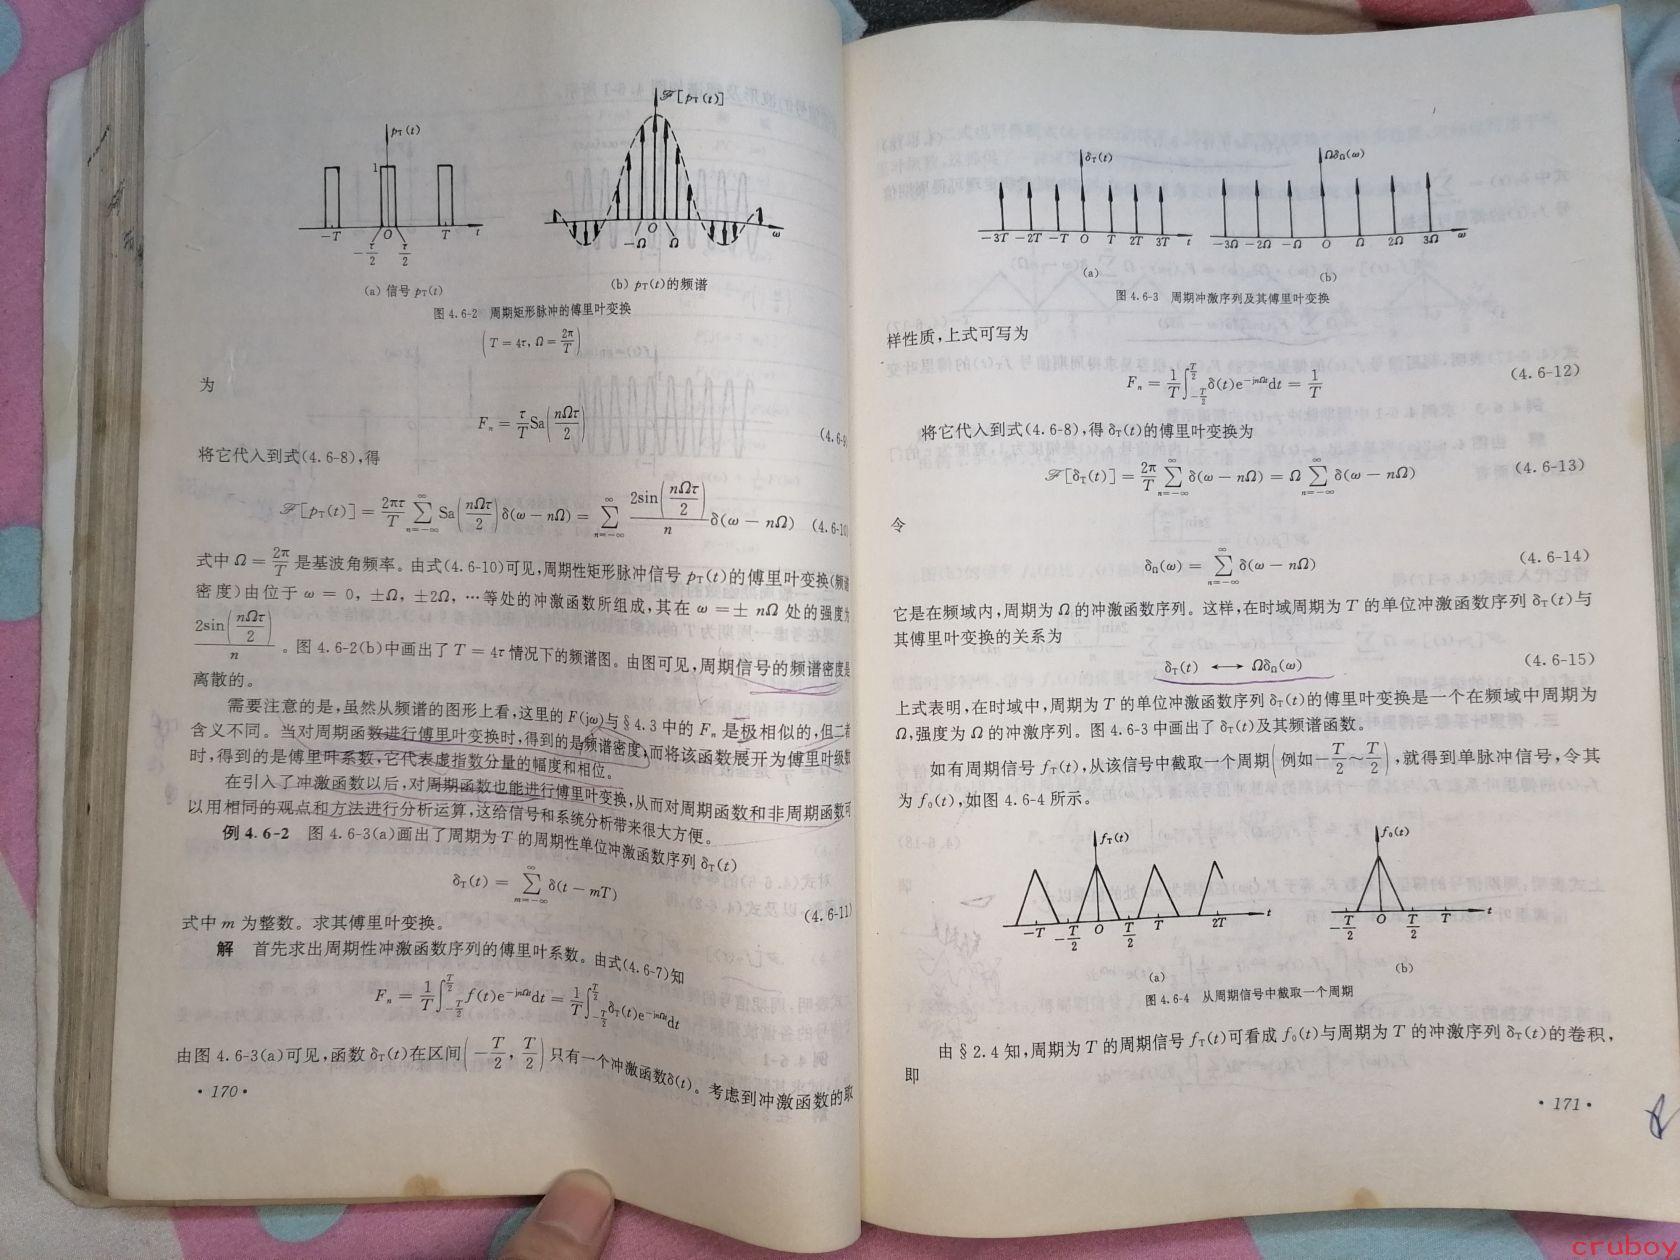 pT(t)
1
-T
-τ/2
O
τ/2
T
t
(a) 信号 pT(t)
ℱ[pT(t)]
-Ω
O
Ω
ω
(b) pT(t)的频谱
图 4.6-2 周期矩形脉冲的傅里叶变换
(T = 4τ, Ω = 2π/T)
为
Fn = τ/T Sa(nΩτ/2) (4.6-9
将它代入到式(4.6-8),得
ℱ[pT(t)] = 2πτ/T ∑_{n=-∞}^{∞} Sa(nΩτ/2)δ(ω - nΩ) = ∑_{n=-∞}^{∞} 2sin(nΩτ/2)/n δ(ω - nΩ) (4.6-10
式中 Ω = 2π/T 是基波角频率。由式(4.6-10)可见,周期性矩形脉冲信号 pT(t)的傅里叶变换(频谱
密度)由位于 ω = 0, ±Ω, ±2Ω, …等处的冲激函数所组成,其在 ω = ± nΩ 处的强度为
2sin(nΩτ/2)/n 。图 4.6-2(b)中画出了 T = 4τ 情况下的频谱图。由图可见,周期信号的频谱密度是
离散的。
需要注意的是,虽然从频谱的图形上看,这里的 F(jω)与§4.3 中的 Fn 是极相似的,但二者
含义不同。当对周期函数进行傅里叶变换时,得到的是频谱密度;而将该函数展开为傅里叶级数
时,得到的是傅里叶系数,它代表虚指数分量的幅度和相位。
在引入了冲激函数以后,对周期函数也能进行傅里叶变换,从而对周期函数和非周期函数可
以用相同的观点和方法进行分析运算,这给信号和系统分析带来很大方便。
例 4.6-2 图 4.6-3(a)画出了周期为 T 的周期性单位冲激函数序列 δT(t)
δT(t) = ∑_{m=-∞}^{∞} δ(t - mT) (4.6-11)
式中 m 为整数。求其傅里叶变换。
解 首先求出周期性冲激函数序列的傅里叶系数。由式(4.6-7)知
Fn = 1/T ∫_{-T/2}^{T/2} f(t)e^{-jnΩt}dt = 1/T ∫_{-T/2}^{T/2} δT(t)e^{-jnΩt}dt
由图 4.6-3(a)可见,函数 δT(t)在区间(-T/2, T/2)只有一个冲激函数δ(t)。考虑到冲激函数的取
· 170 ·
δT(t)
-3T -2T -T O T 2T 3T t
(a)
ΩδΩ(ω)
-3Ω -2Ω -Ω O Ω 2Ω 3Ω ω
(b)
图 4.6-3 周期冲激序列及其傅里叶变换
样性质,上式可写为
Fn = 1/T ∫_{-T/2}^{T/2} δ(t)e^{-jnΩt}dt = 1/T (4.6-12)
将它代入到式(4.6-8),得 δT(t)的傅里叶变换为
ℱ[δT(t)] = 2π/T ∑_{n=-∞}^{∞} δ(ω - nΩ) = Ω ∑_{n=-∞}^{∞} δ(ω - nΩ) (4.6-13)
令
δΩ(ω) = ∑_{n=-∞}^{∞} δ(ω - nΩ) (4.6-14)
它是在频域内,周期为 Ω 的冲激函数序列。这样,在时域周期为 T 的单位冲激函数序列 δT(t)与
其傅里叶变换的关系为
δT(t) ⟷ ΩδΩ(ω) (4.6-15)
上式表明,在时域中,周期为 T 的单位冲激函数序列 δT(t)的傅里叶变换是一个在频域中周期为
Ω,强度为 Ω 的冲激序列。图 4.6-3 中画出了 δT(t)及其频谱函数。
如有周期信号 fT(t),从该信号中截取一个周期(例如-T/2~T/2),就得到单脉冲信号,令其
为 f0(t),如图 4.6-4 所示。
fT(t)
-T -T/2 O T/2 T 2T t
(a)
f0(t)
-T/2 O T/2 T t
(b)
图 4.6-4 从周期信号中截取一个周期
由§2.4 知,周期为 T 的周期信号 fT(t)可看成 f0(t)与周期为 T 的冲激序列 δT(t)的卷积,
即
· 171 ·
cruboy